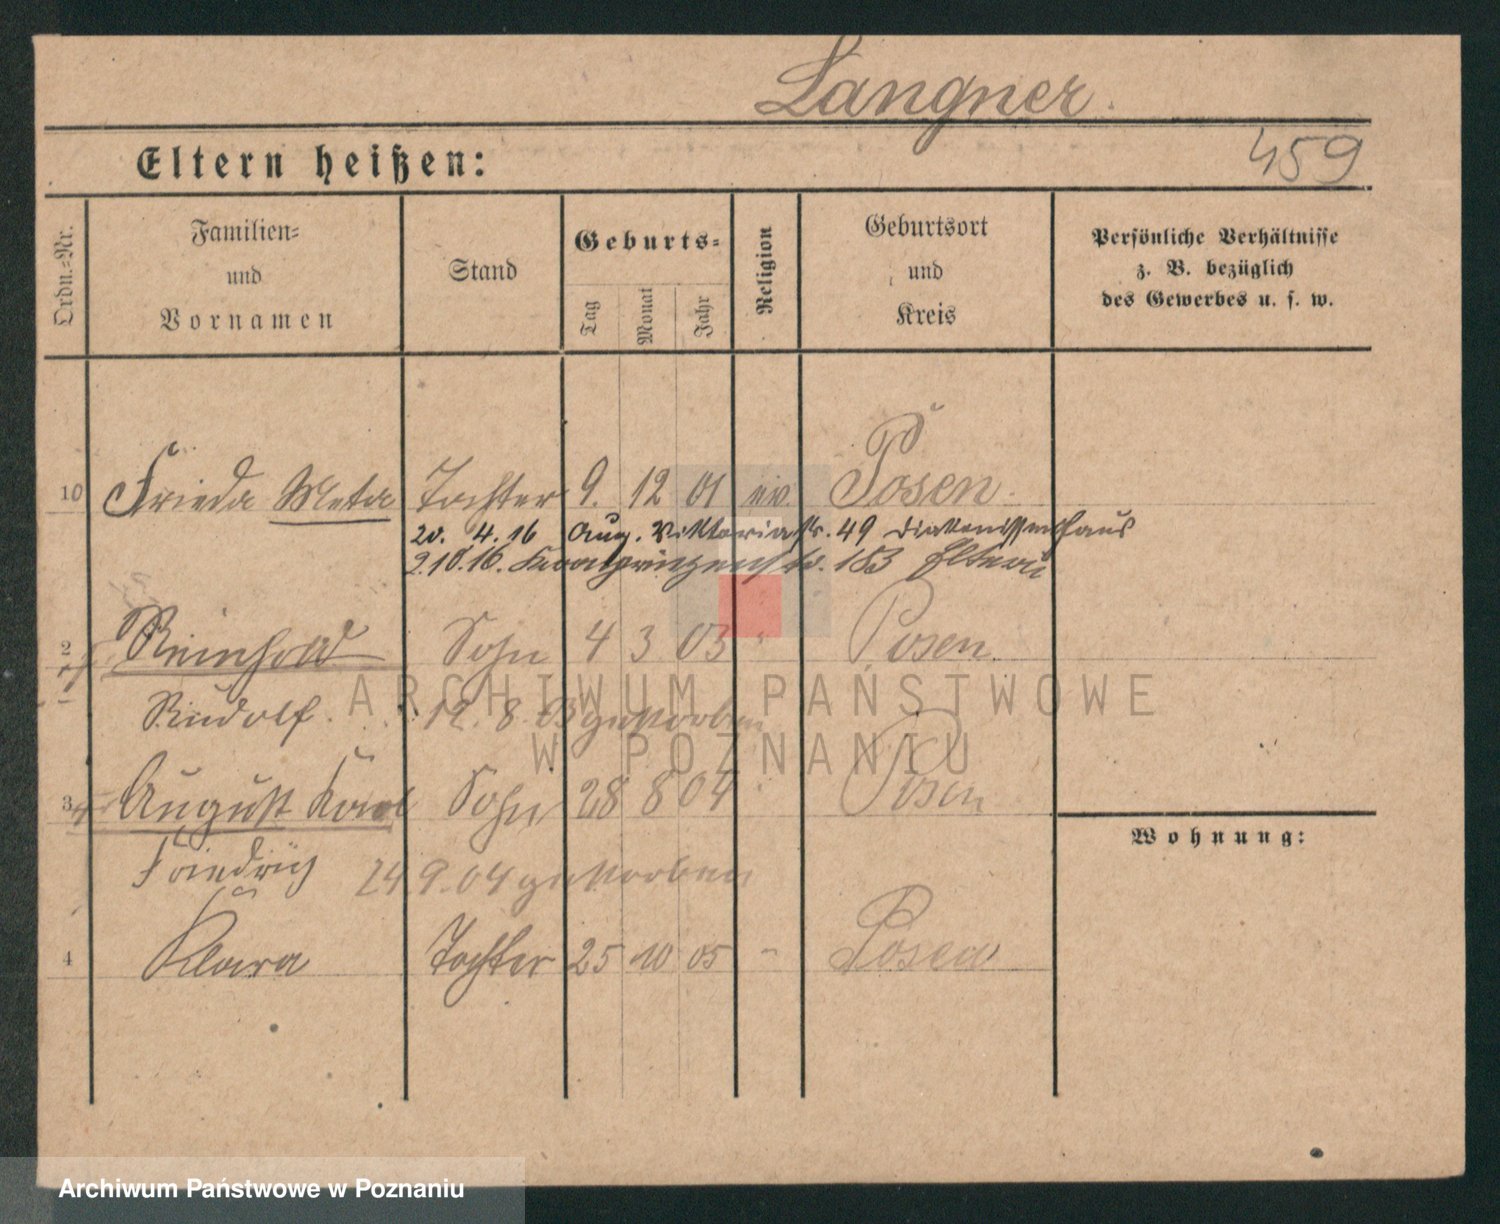 Langner.
459
Eltern heißen:
Ordn.-Nr.
Familien-
und
Vornamen
Stand
Geburts-
Tag
Monat
Jahr
Religion
Geburtsort
und
Kreis
Persönliche Verhältnisse
z. B. bezüglich
des Gewerbes u. s. w.
10 Frieda Meta Tochter 9. 12 01 ev. Posen
20. 4. 16 Aug. Viktoriastr. 49 Diakonissenhaus
2.10.16. Kronprinzenstr. 153 Eltern
2 Reinhold Sohn 4 3 03 " Posen.
Rudolf. 12. 8. 03 gestorben
3 August Karl Sohn 28 8 04 " Posen
Friedrich 24 9. 04 gestorben
4 Klara Tochter 25 10 05 " Posen
Wohnung:
ARCHIWUM PAŃSTWOWE
W POZNANIU
Archiwum Państwowe w Poznaniu